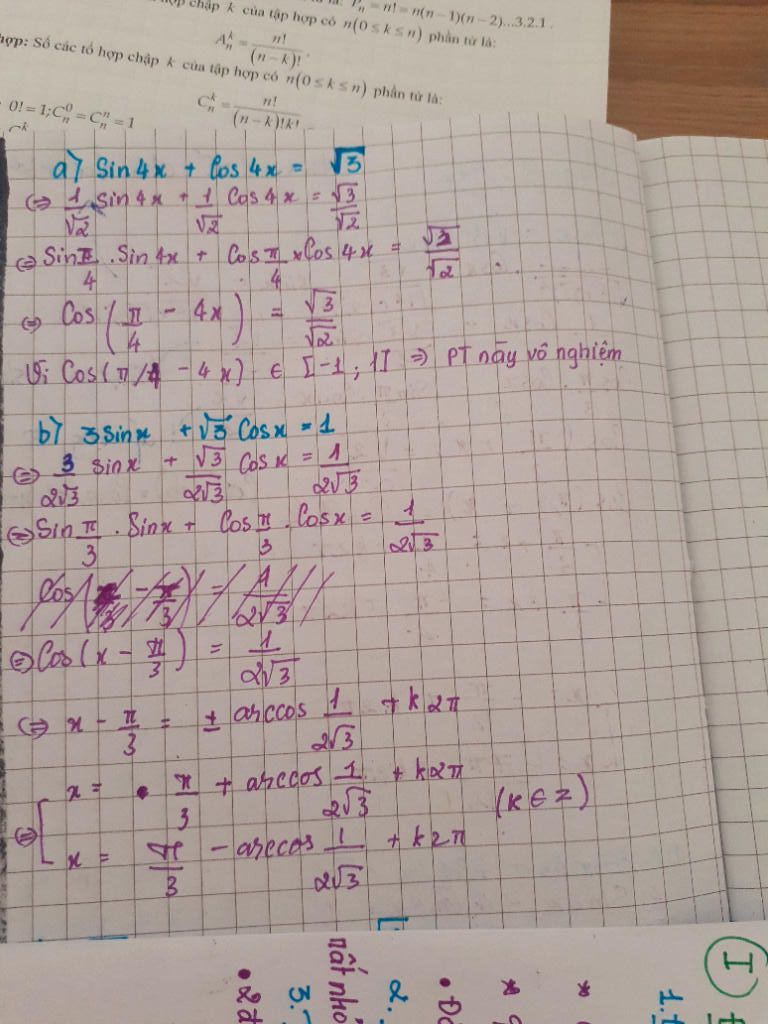 P_n = n! = n(n-1)(n-2)...3.2.1 .
hợp chập k của tập hợp có n(0 ≤ k ≤ n) phần tử là:
A_n^k = n!/(n-k)! .
hợp: Số các tổ hợp chập k của tập hợp có n(0 ≤ k ≤ n) phần tử là:
C_n^k = n!/((n-k)!k!)
0! = 1; C_n^0 = C_n^n = 1
a) Sin4x + Cos4x = √3
⇔ 1/√2 Sin4x + 1/√2 Cos4x = √3/√2
⇔ Sin π/4 . Sin4x + Cos π/4 × Cos4x = √3/√2
⇔ Cos(π/4 - 4x) = √3/√2
Vì Cos(π/4 - 4x) ∈ [-1; 1] ⇒ PT này vô nghiệm
b) 3Sinx + √3 Cosx = 1
⇔ 3/2√3 sinx + √3/2√3 Cosx = 1/2√3
⇔ Sin π/3 . Sinx + Cos π/3 . Cosx = 1/2√3
⇔ Cos(x - π/3) = 1/2√3
⇔ x - π/3 = ± arccos 1/2√3 + k2π
⇔ [ x = π/3 + arccos 1/2√3 + k2π
x = π/3 - arccos 1/2√3 + k2π
(k ∈ Z)
I
1.
2.
3.
nất nhỏ